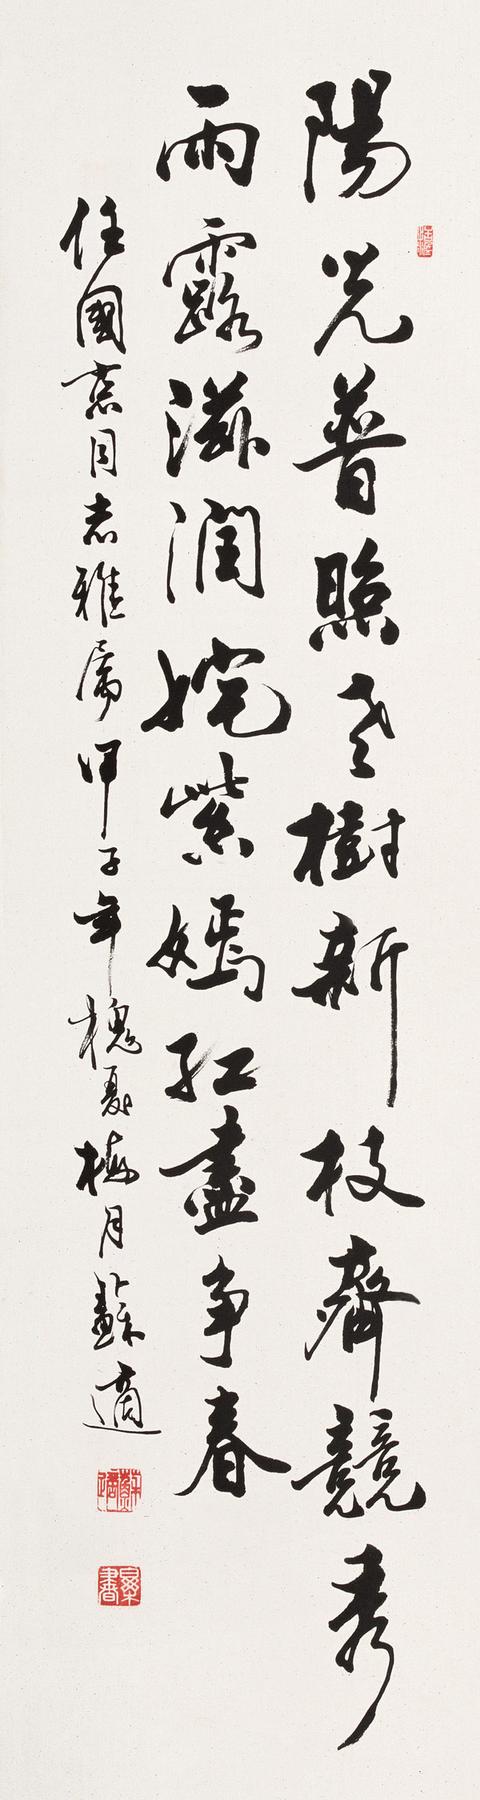 陽光普照老樹新枝齊競秀
雨露滋潤姹紫嫣紅盡争春
任國憲同志雅属甲子年槐夏梅月蘇適
蘇適